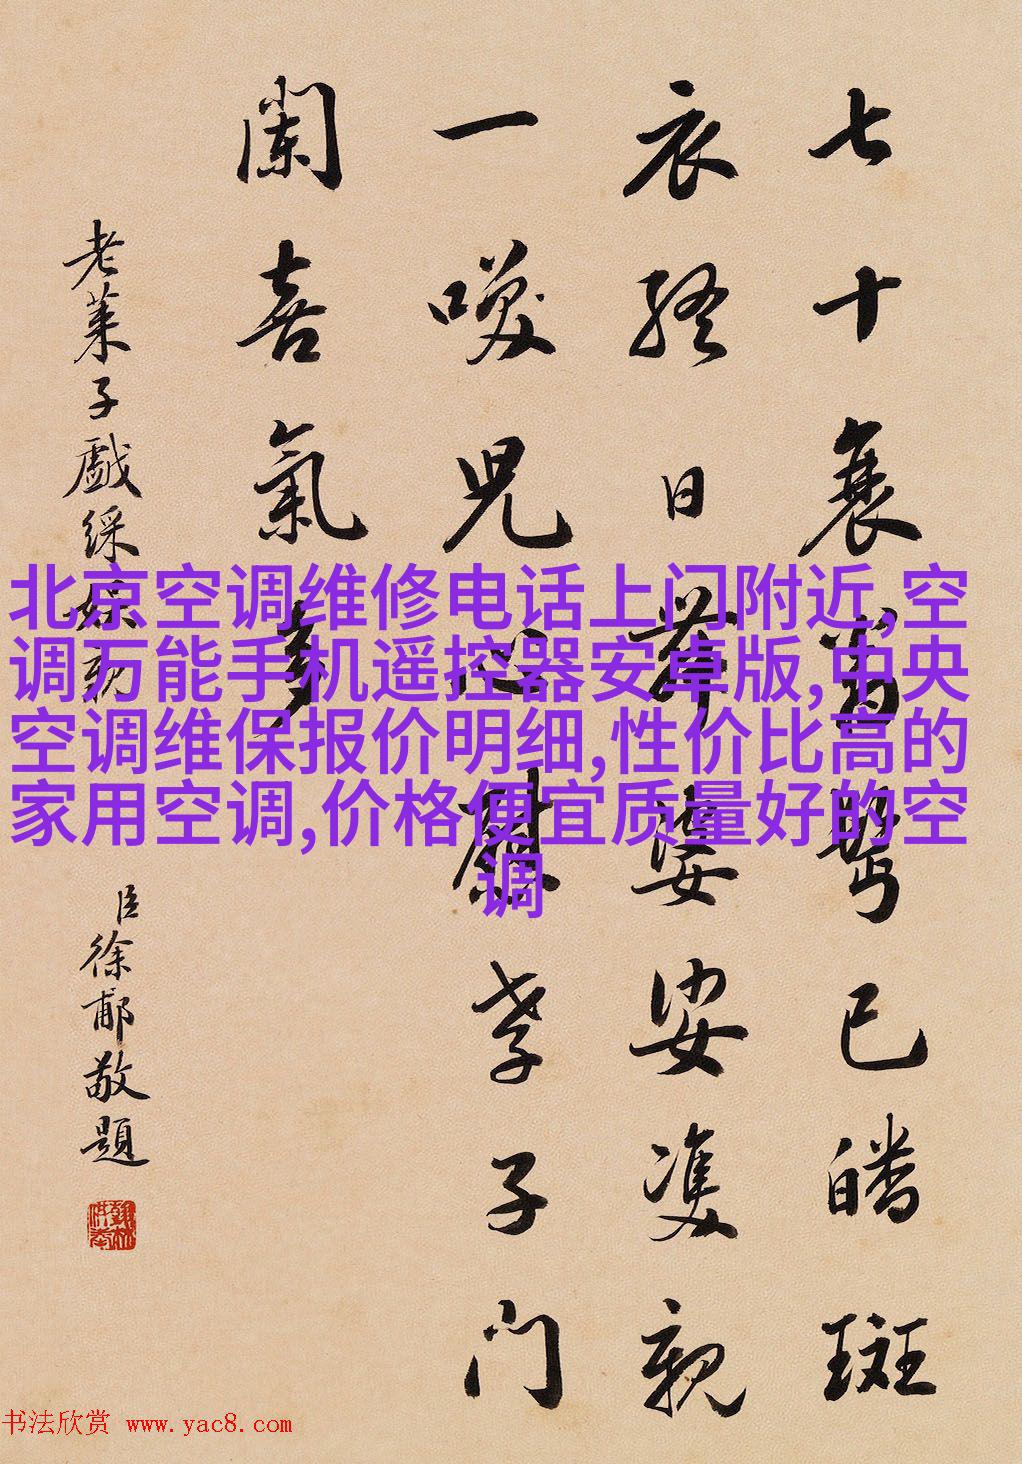 七十衰翁鬢已皤斑
衣終日舞婆娑雙親
一咲兒心慰孝子門
闌喜氣多
老萊子戲綵娛親
臣徐郙敬題
北京空调维修电话上门附近,空
调万能手机遥控器安卓版,中央
空调维保报价明细,性价比高的
家用空调,价格便宜质量好的空
调
书法欣赏 www.yac8.com